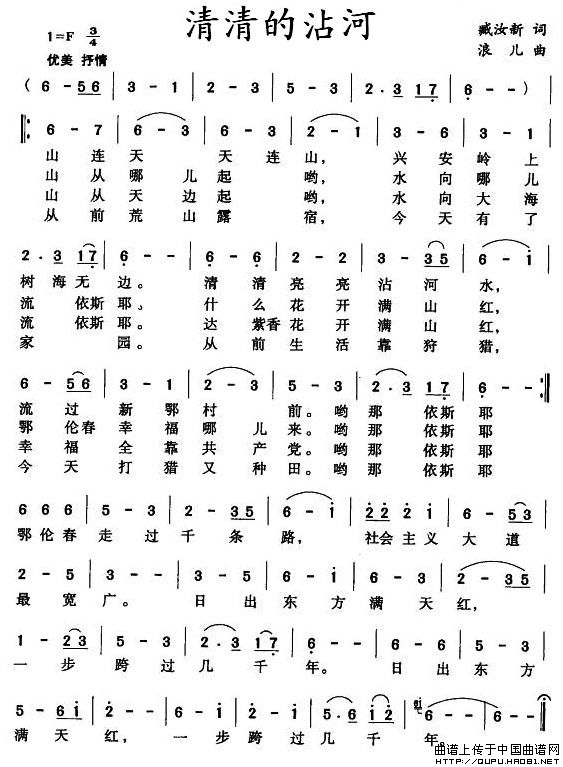 清清的沾河
1=F 3/4
优美 抒情
臧汝新 词
浪儿 曲
( 6 - 56 | 3 - 1 | 2 - 3 | 5 - 3 | 2·3 17 | 6 - - )
6 - 7 | 6 - 3 | 6 - 3 | 2 - 1 | 3 - 6 | 3 - 1
山 连 天 天 连 山, 兴 安 岭 上
山 从 哪 儿 起 哟, 水 向 哪 儿
山 从 天 边 起 哟, 水 向 大 海
从 前 荒 山 露 宿, 今 天 有 了
2·3 17 | 6 - - | 6 - 6 | 2 - 2 | 3 - 35 | 6 - i
树 海 无 边。 清 清 亮 亮 沾 河 水,
流 依斯 耶、 什 么 花 开 满 山 红,
流 依斯 耶。 达 紫香 花 开 满 山 红,
家 园。 从 前 生 活 靠 狩 猎,
6 - 56 | 3 - 1 | 2 - 3 | 5 - 3 | 2·3 17 | 6 - -
流 过 新 鄂 村 前。哟 那 依斯 耶
鄂 伦春 幸 福 哪 儿 来。哟 那 依斯 耶
幸 福 全 靠 共 产 党。哟 那 依斯 耶
今 天 打 猎 又 种 田。哟 那 依斯 耶
6 6 6 | 5 - 3 | 2 - 3 | 6 - i | 2 2 2 i | 6 - 53
鄂 伦 春 走 过 千 条 路, 社会 主 义 大 道
2 - 5 | 3 - - | 3 - 5 | 6 - 6 | 2 - 2 | 2 - 35
最 宽 广。 日 出 东 方 满 天 红,
1 - 23 | 5 - 5 | 2·3 17 | 6 - - | 6 - 6 | 5 - 3
一 步 跨 过 几 千 年。 日 出 东 方
5 - 6i | 2 - - | 6 - i | 2 - 2 | 5·6 i2 | 6 - - | 6 - -
满 天 红, 一 步 跨 过 几 千 年。
曲谱上传于中国曲谱网
HTTP://QUPU.HAO81.NET